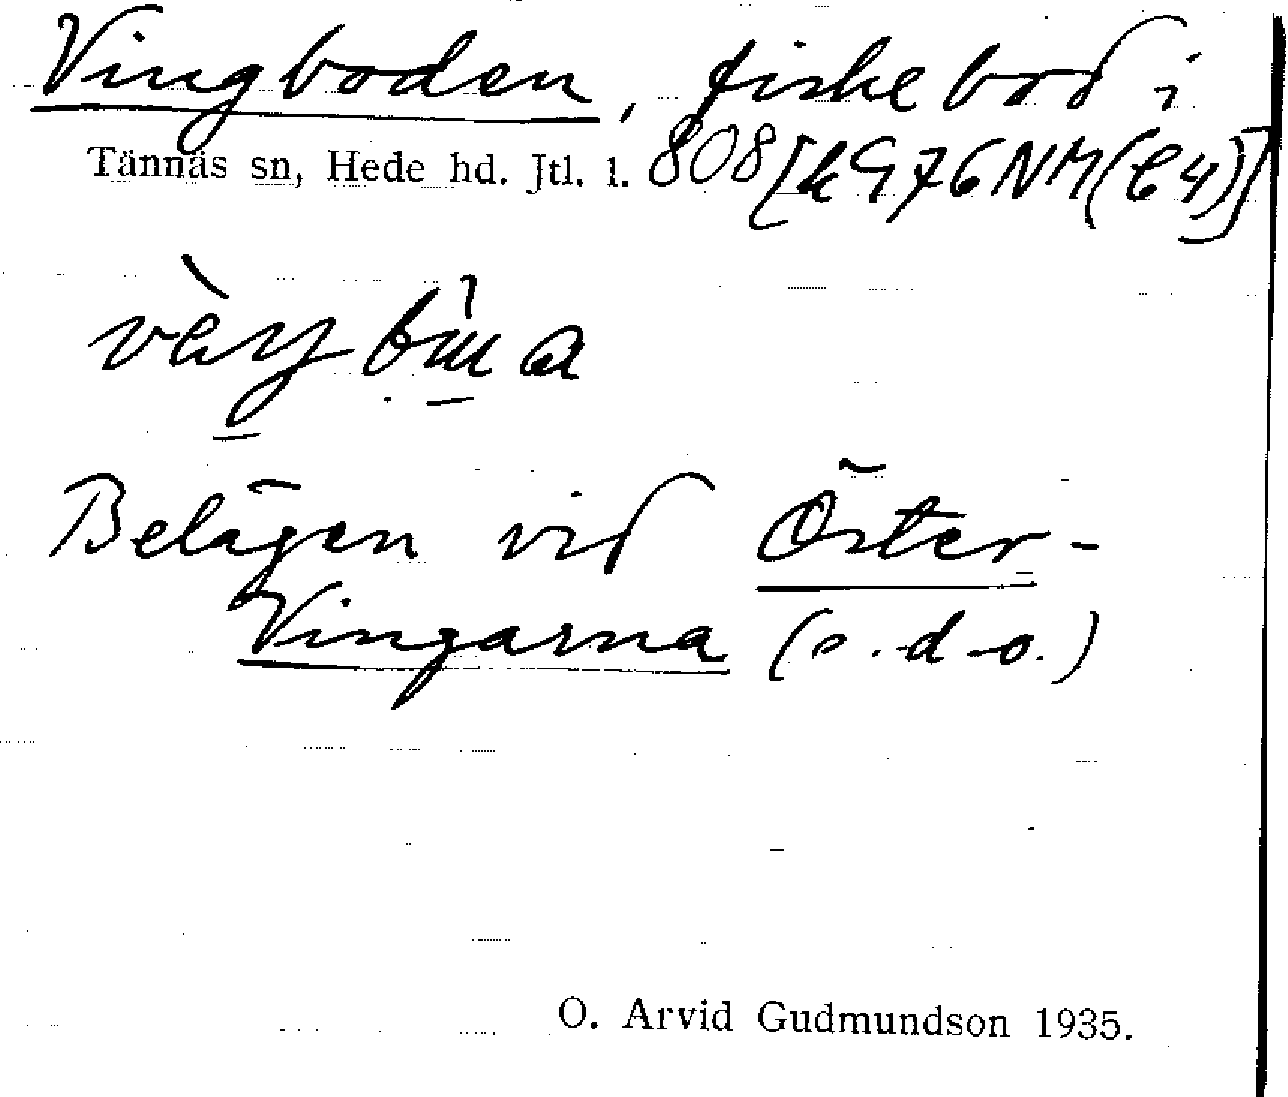 Vingboden, fiskebod i
Tännäs sn, Hede hd. Jtl. l. 808 [k976NM(C4)]
Belägen vid Öster-
Vingarna (s.d.o.)
O. Arvid Gudmundson 1935.